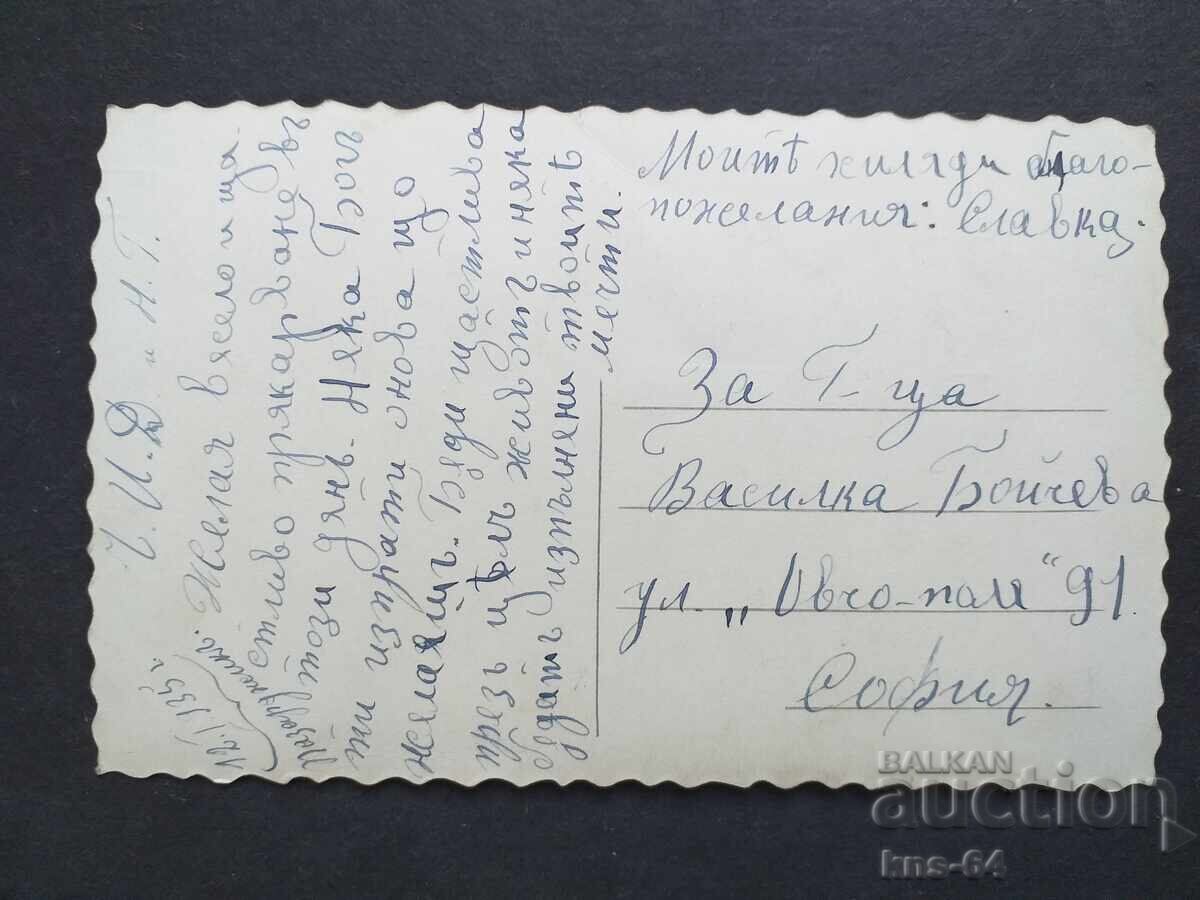 Ч. И. Д и Н. Г.
Желая вясело и ща-
стливо прякарване въ
този дянь. Няка Богъ
ти изпрати онова що
желаяшъ. Бъди щастлива
презъ цѣлъ животъ и няка
бѫдатъ изпълняни твоитѣ
мечти.
Моитѣ хиляди благо-
пожелания: Славка.
За Г-ца
Василка Бойчева
ул. „Овчо-поле" 91.
София.
BALKAN
auction
kns-64